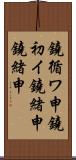 鏡循ワ申鏡
初イ鏡結申
鏡緒申